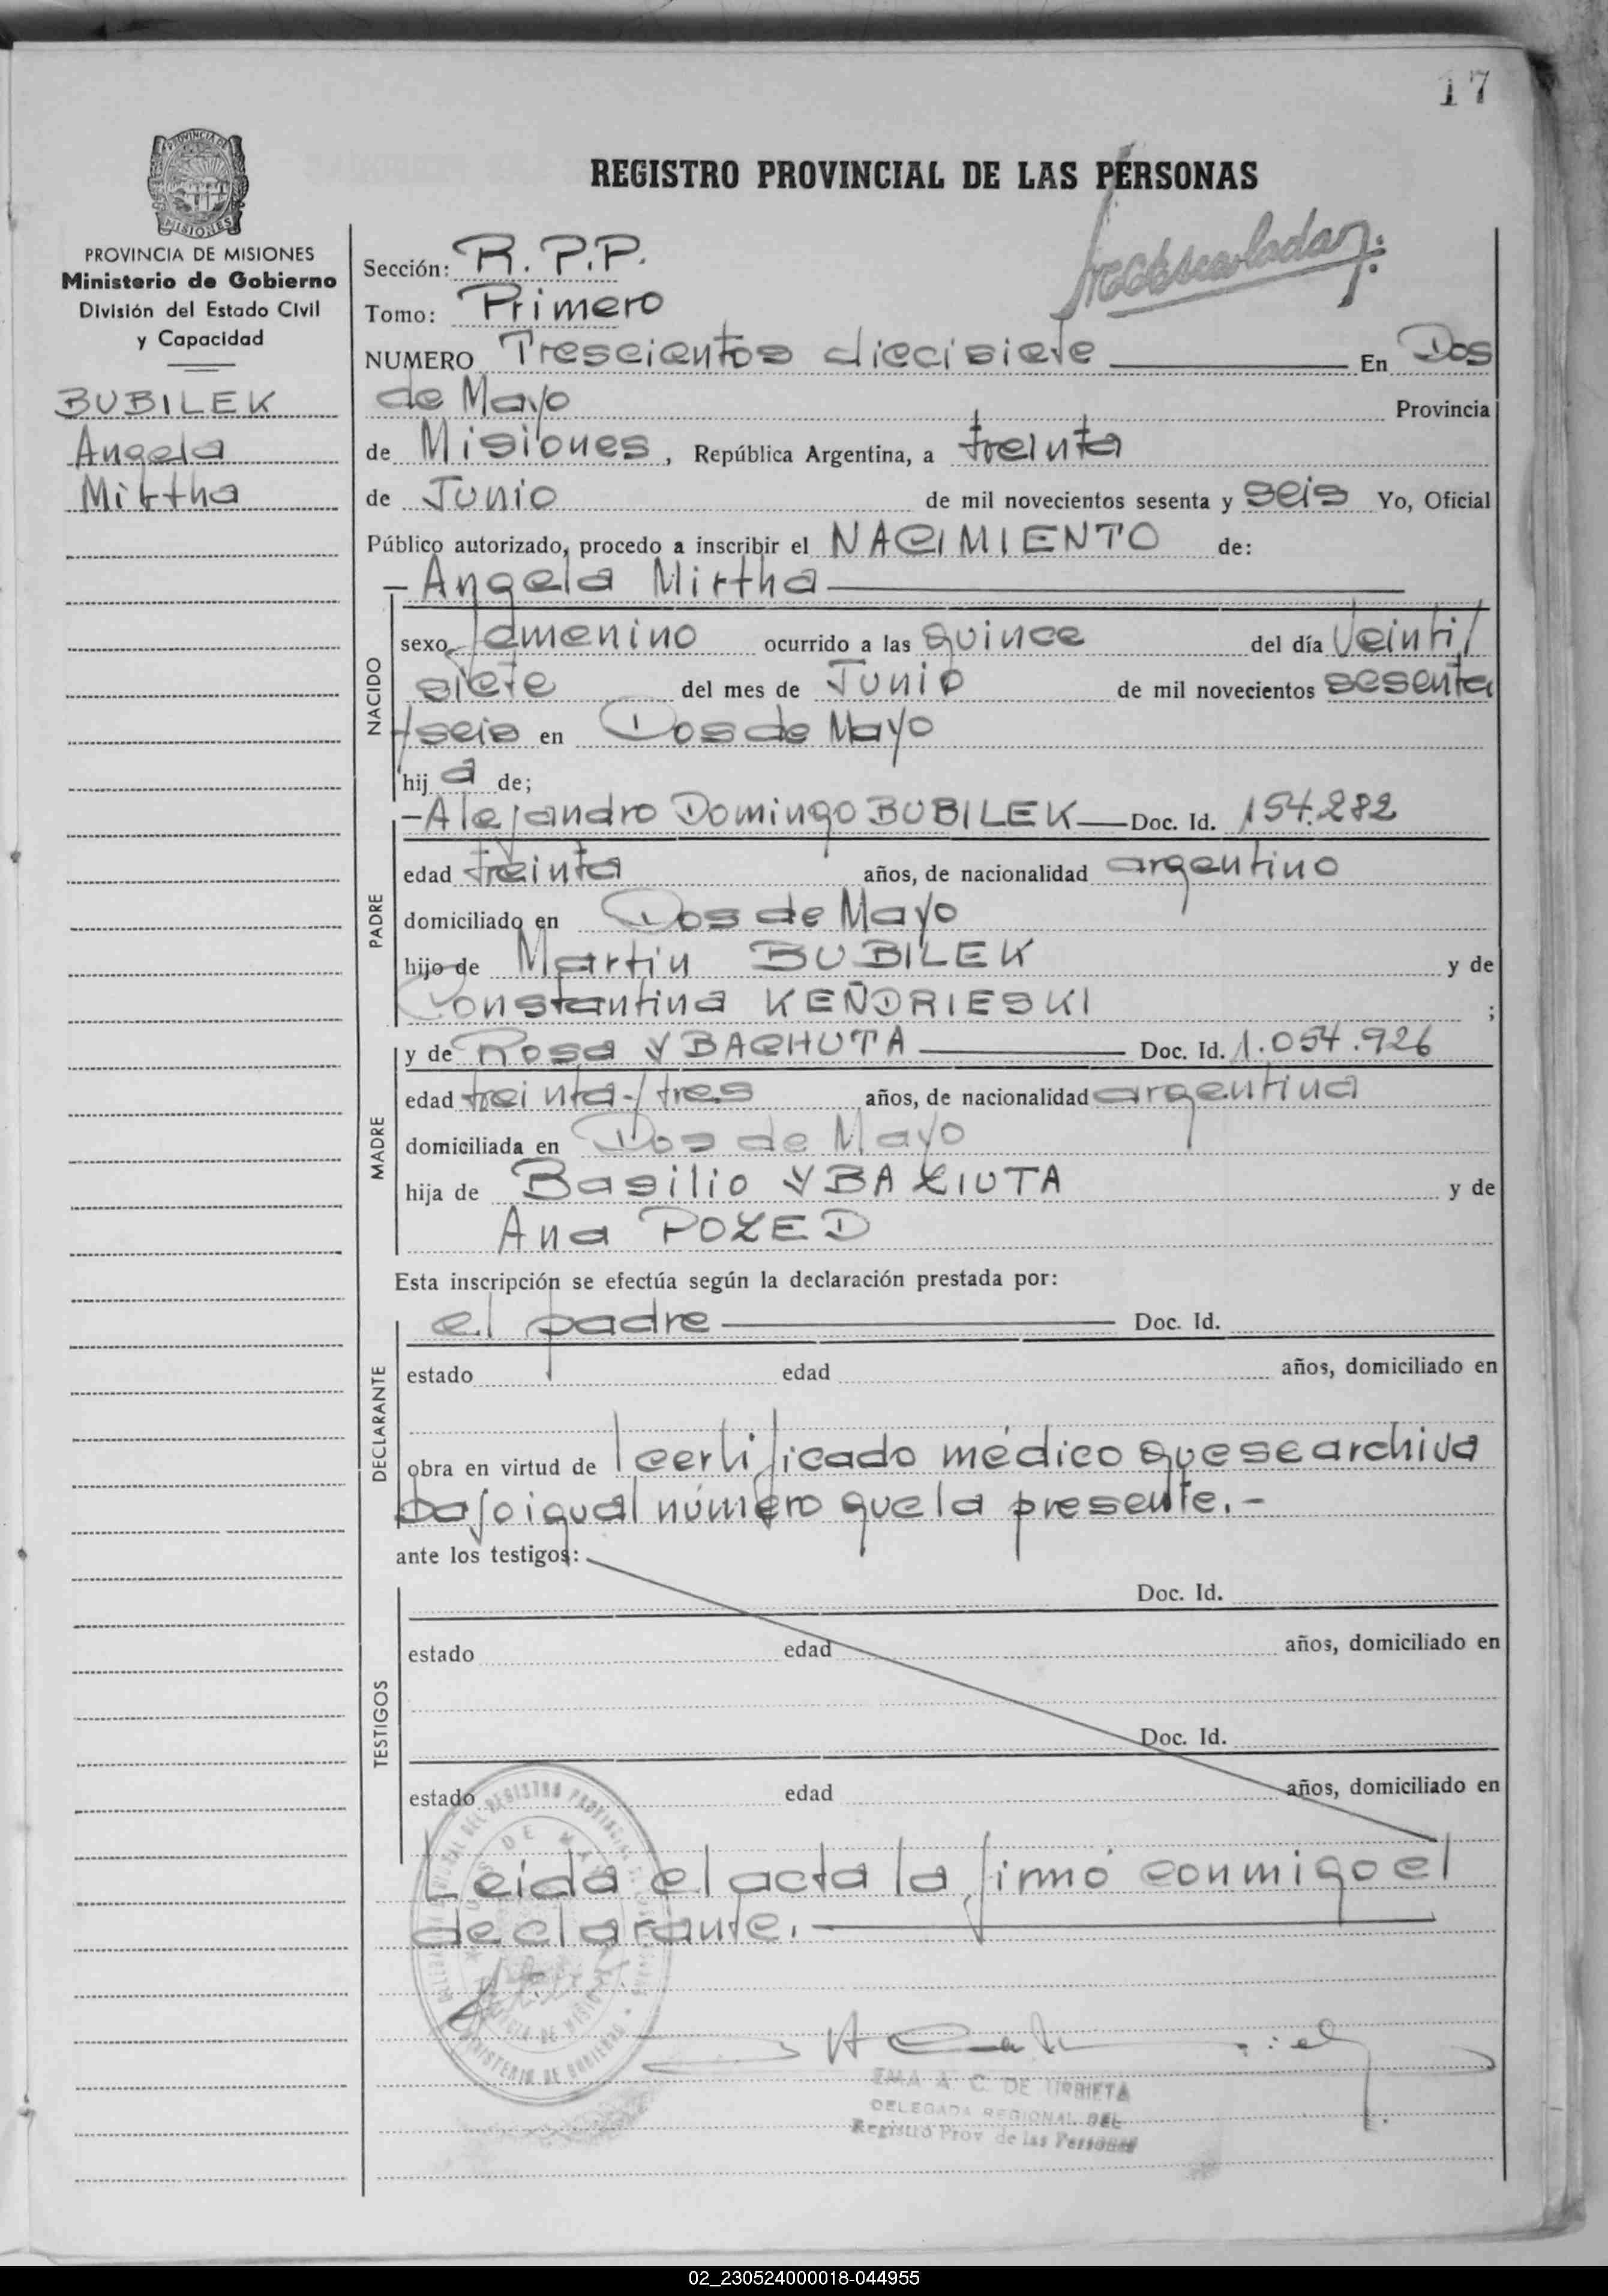 17
REGISTRO PROVINCIAL DE LAS PERSONAS
PROVINCIA DE MISIONES
Ministerio de Gobierno
División del Estado Civil
y Capacidad
BUBILEK
Angela
Mirtha
Sección: R.P.P.
Tomo: Primero
NUMERO Trescientos diecisiete En Dos
de Mayo Provincia
de Misiones, República Argentina, a treinta
de Junio de mil novecientos sesenta y seis Yo, Oficial
Público autorizado, procedo a inscribir el NACIMIENTO de:
- Angela Mirtha
NACIDO
sexo femenino ocurrido a las quince del día Veinti/
siete del mes de Junio de mil novecientos sesenta
/seis en Dos de Mayo
hija de;
PADRE
- Alejandro Domingo BUBILEK Doc. Id. 154.282
edad treinta años, de nacionalidad argentino
domiciliado en Dos de Mayo
hijo de Martin BUBILEK y de
Constantina KEÑDRIESKI ;
MADRE
y de Rosa YBACHUTA Doc. Id. 1.054.926
edad treinta/tres años, de nacionalidad argentina
domiciliada en Dos de Mayo
hija de Basilio YBAXIUTA y de
Ana
Esta inscripción se efectúa según la declaración prestada por:
DECLARANTE
el padre Doc. Id.
estado edad años, domiciliado en
obra en virtud de certificado médico que se archiva
bajo igual número que la presente.-
ante los testigos:
TESTIGOS
Doc. Id.
estado edad años, domiciliado en
Doc. Id.
estado edad años, domiciliado en
Leída el acta la firmó conmigo el
declarante.
EMA A. C. DE URBIETA
DELEGADA REGIONAL DEL
Registro Prov. de las Personas
02_230524000018-044955